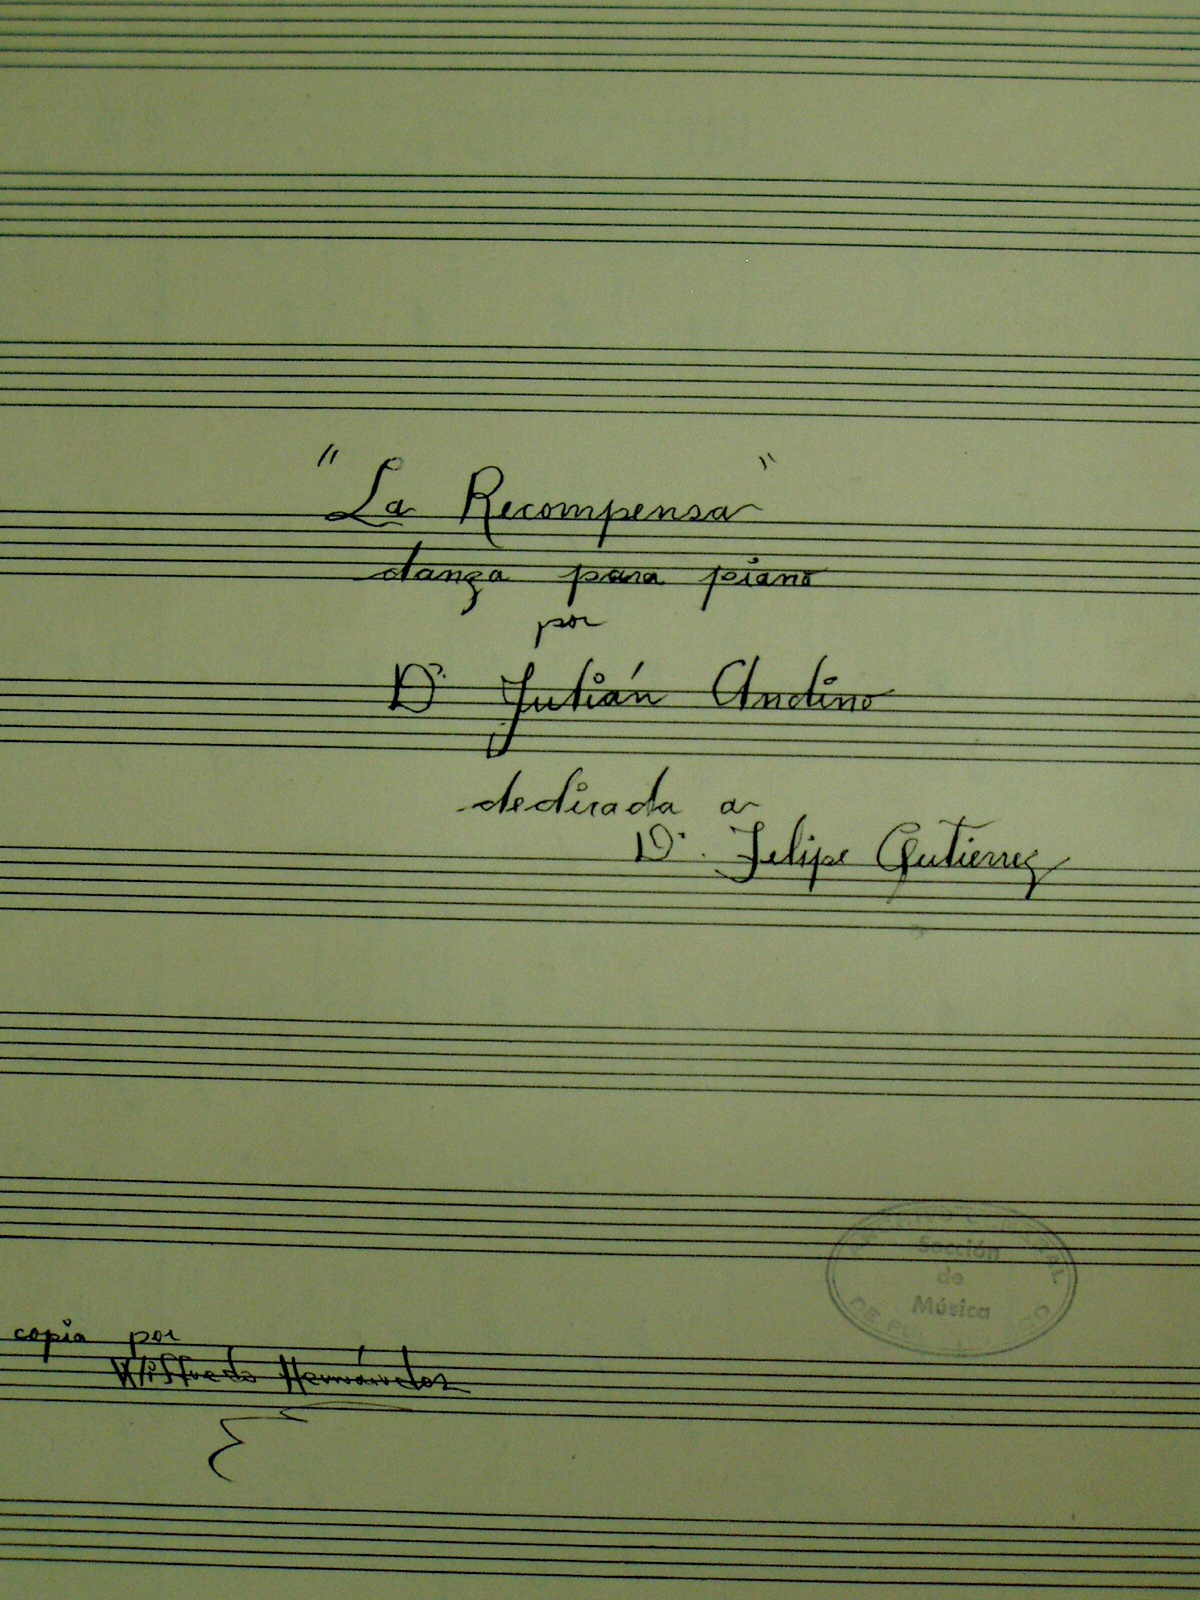 "La Recompensa"
danza para piano
por
D. Julián Andino
dedicada a
D. Felipe Gutierrez
ARCHIVO GENERAL
Sección
de
Música
DE PUERTO RICO
copia por
Wilfredo Hernández